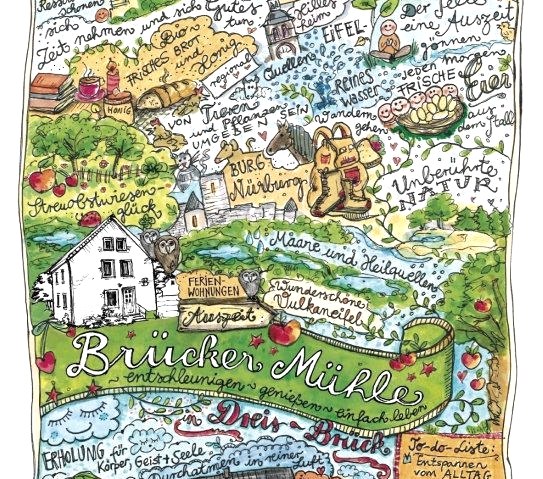 nehmen
Zeit nehmen und sich Gutes
tun
Hillesheim
EIFEL
Der Seele
eine Auszeit
gönnen
Bio
FRISCHES BROT
und
Honig
regional
Quellen
REINES
Wasser
JEDEN
morgen
FRISCHE
Eier
aus
dem Stall
HONIG
VON Tieren
und Pflanzen
UMGEBEN SEIN
Wandern
gehen
BURG
Nürburg
Unberührte
NATUR
Streuobstwiesen-
glück
Maare und Heilquellen
FERIEN-
WOHNUNGEN
Auszeit
Wunderschöne
Vulkaneifel
Brücker Mühle
~ entschleunigen ~ genießen ~ einfach leben
in Dreis-Brück
ERHOLUNG für
Körper, Geist + Seele
Durchatmen in reiner Luft
To-do-Liste:
Entspannen
vom ALLTAG